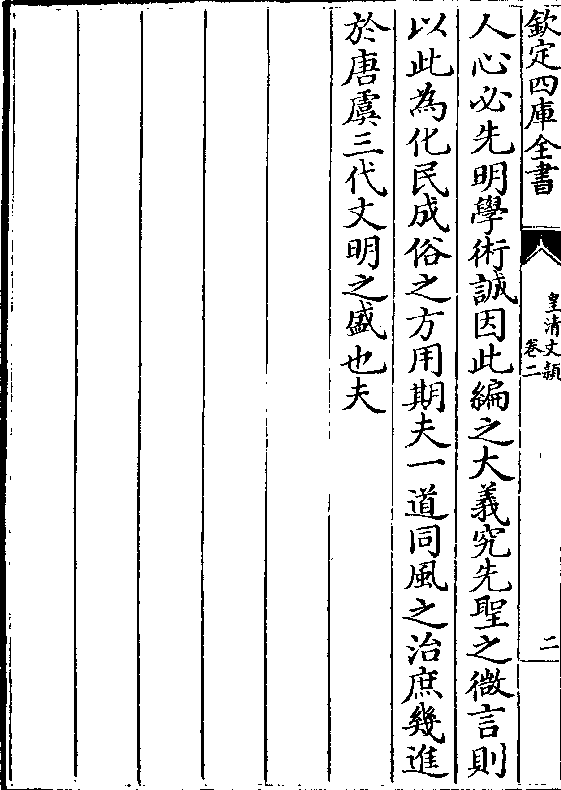 欽定四庫全書
皇清文穎
卷二
二
人心必先明學術誠因此編之大義究先聖之微言則
以此為化民成俗之方用期夫一道同風之治庶幾進
於唐虞三代文明之盛也夫